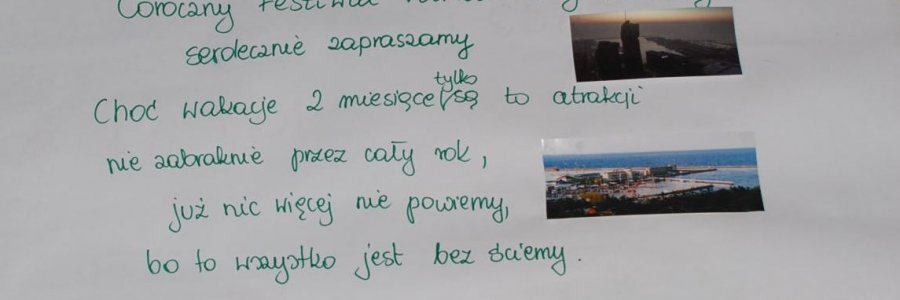 Coroczny Festiwal
serdecznie zapraszamy
Choć wakacje 2 miesiące tylko są to atrakcji
nie zabraknie przez cały rok,
już nic więcej nie powiemy,
bo to wszystko jest bez ściemy.